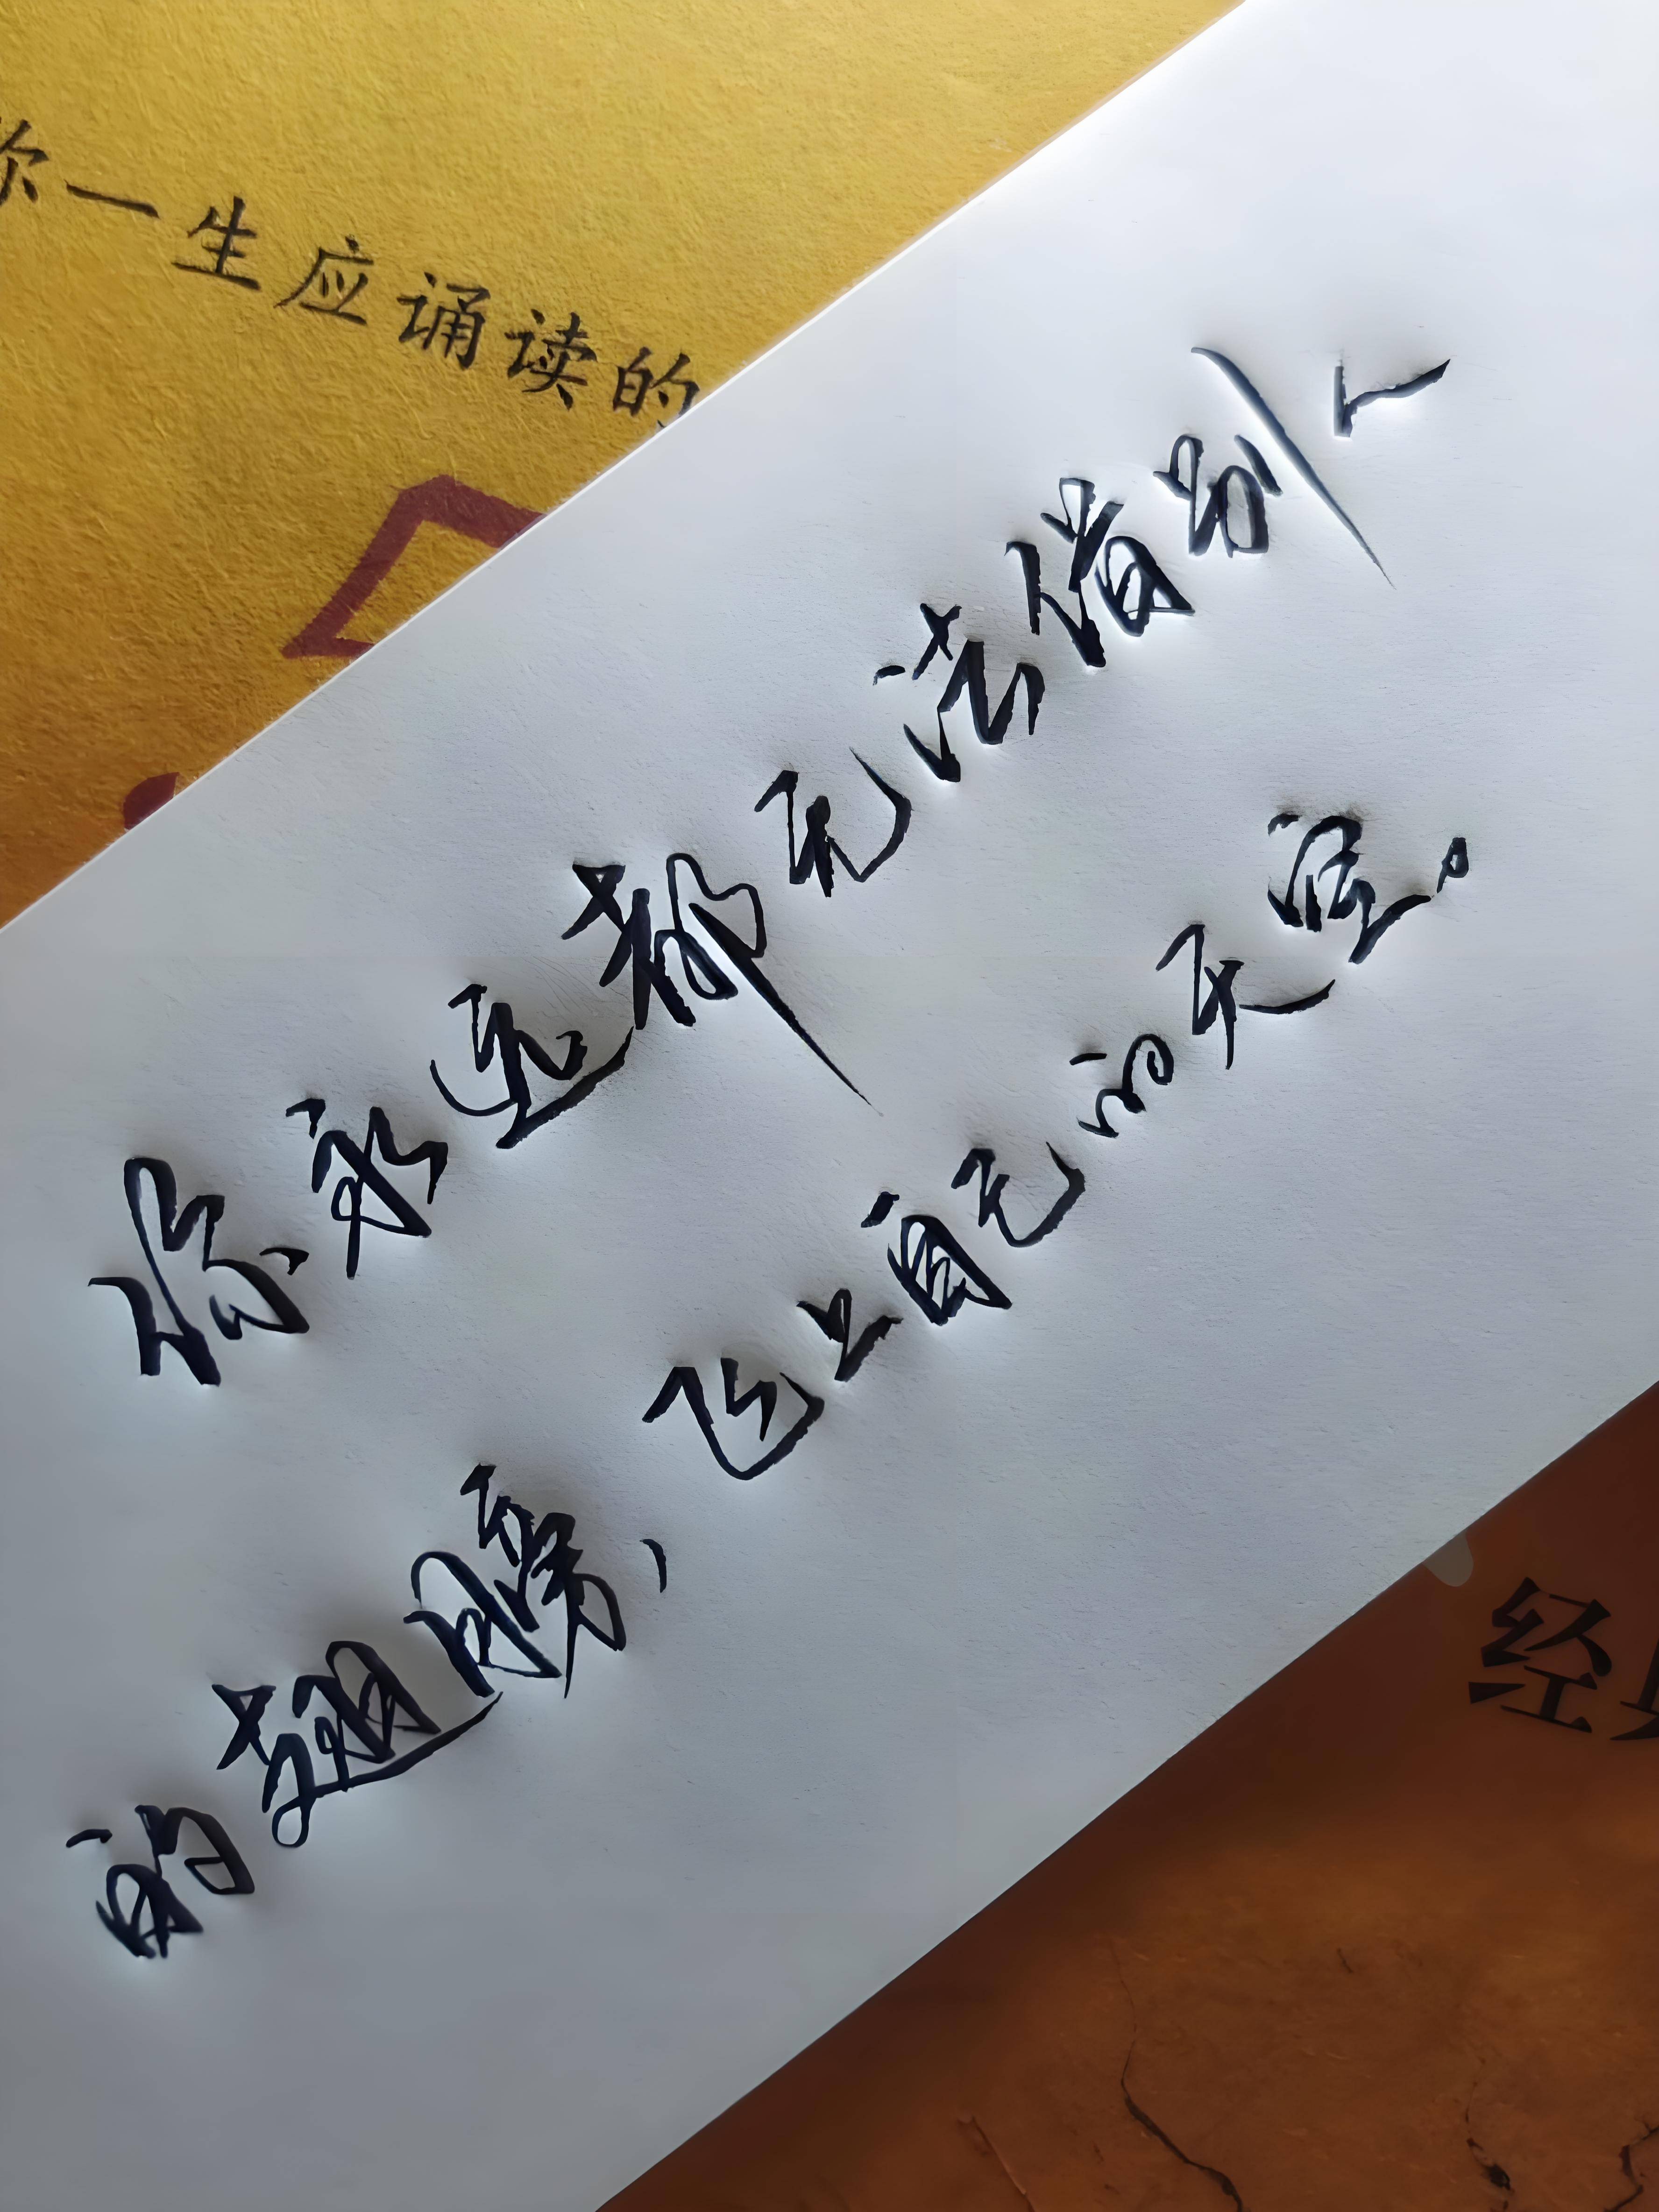 你一生应诵读的
你永远都无法借别人
的翅膀、飞上自己的天空。
经典